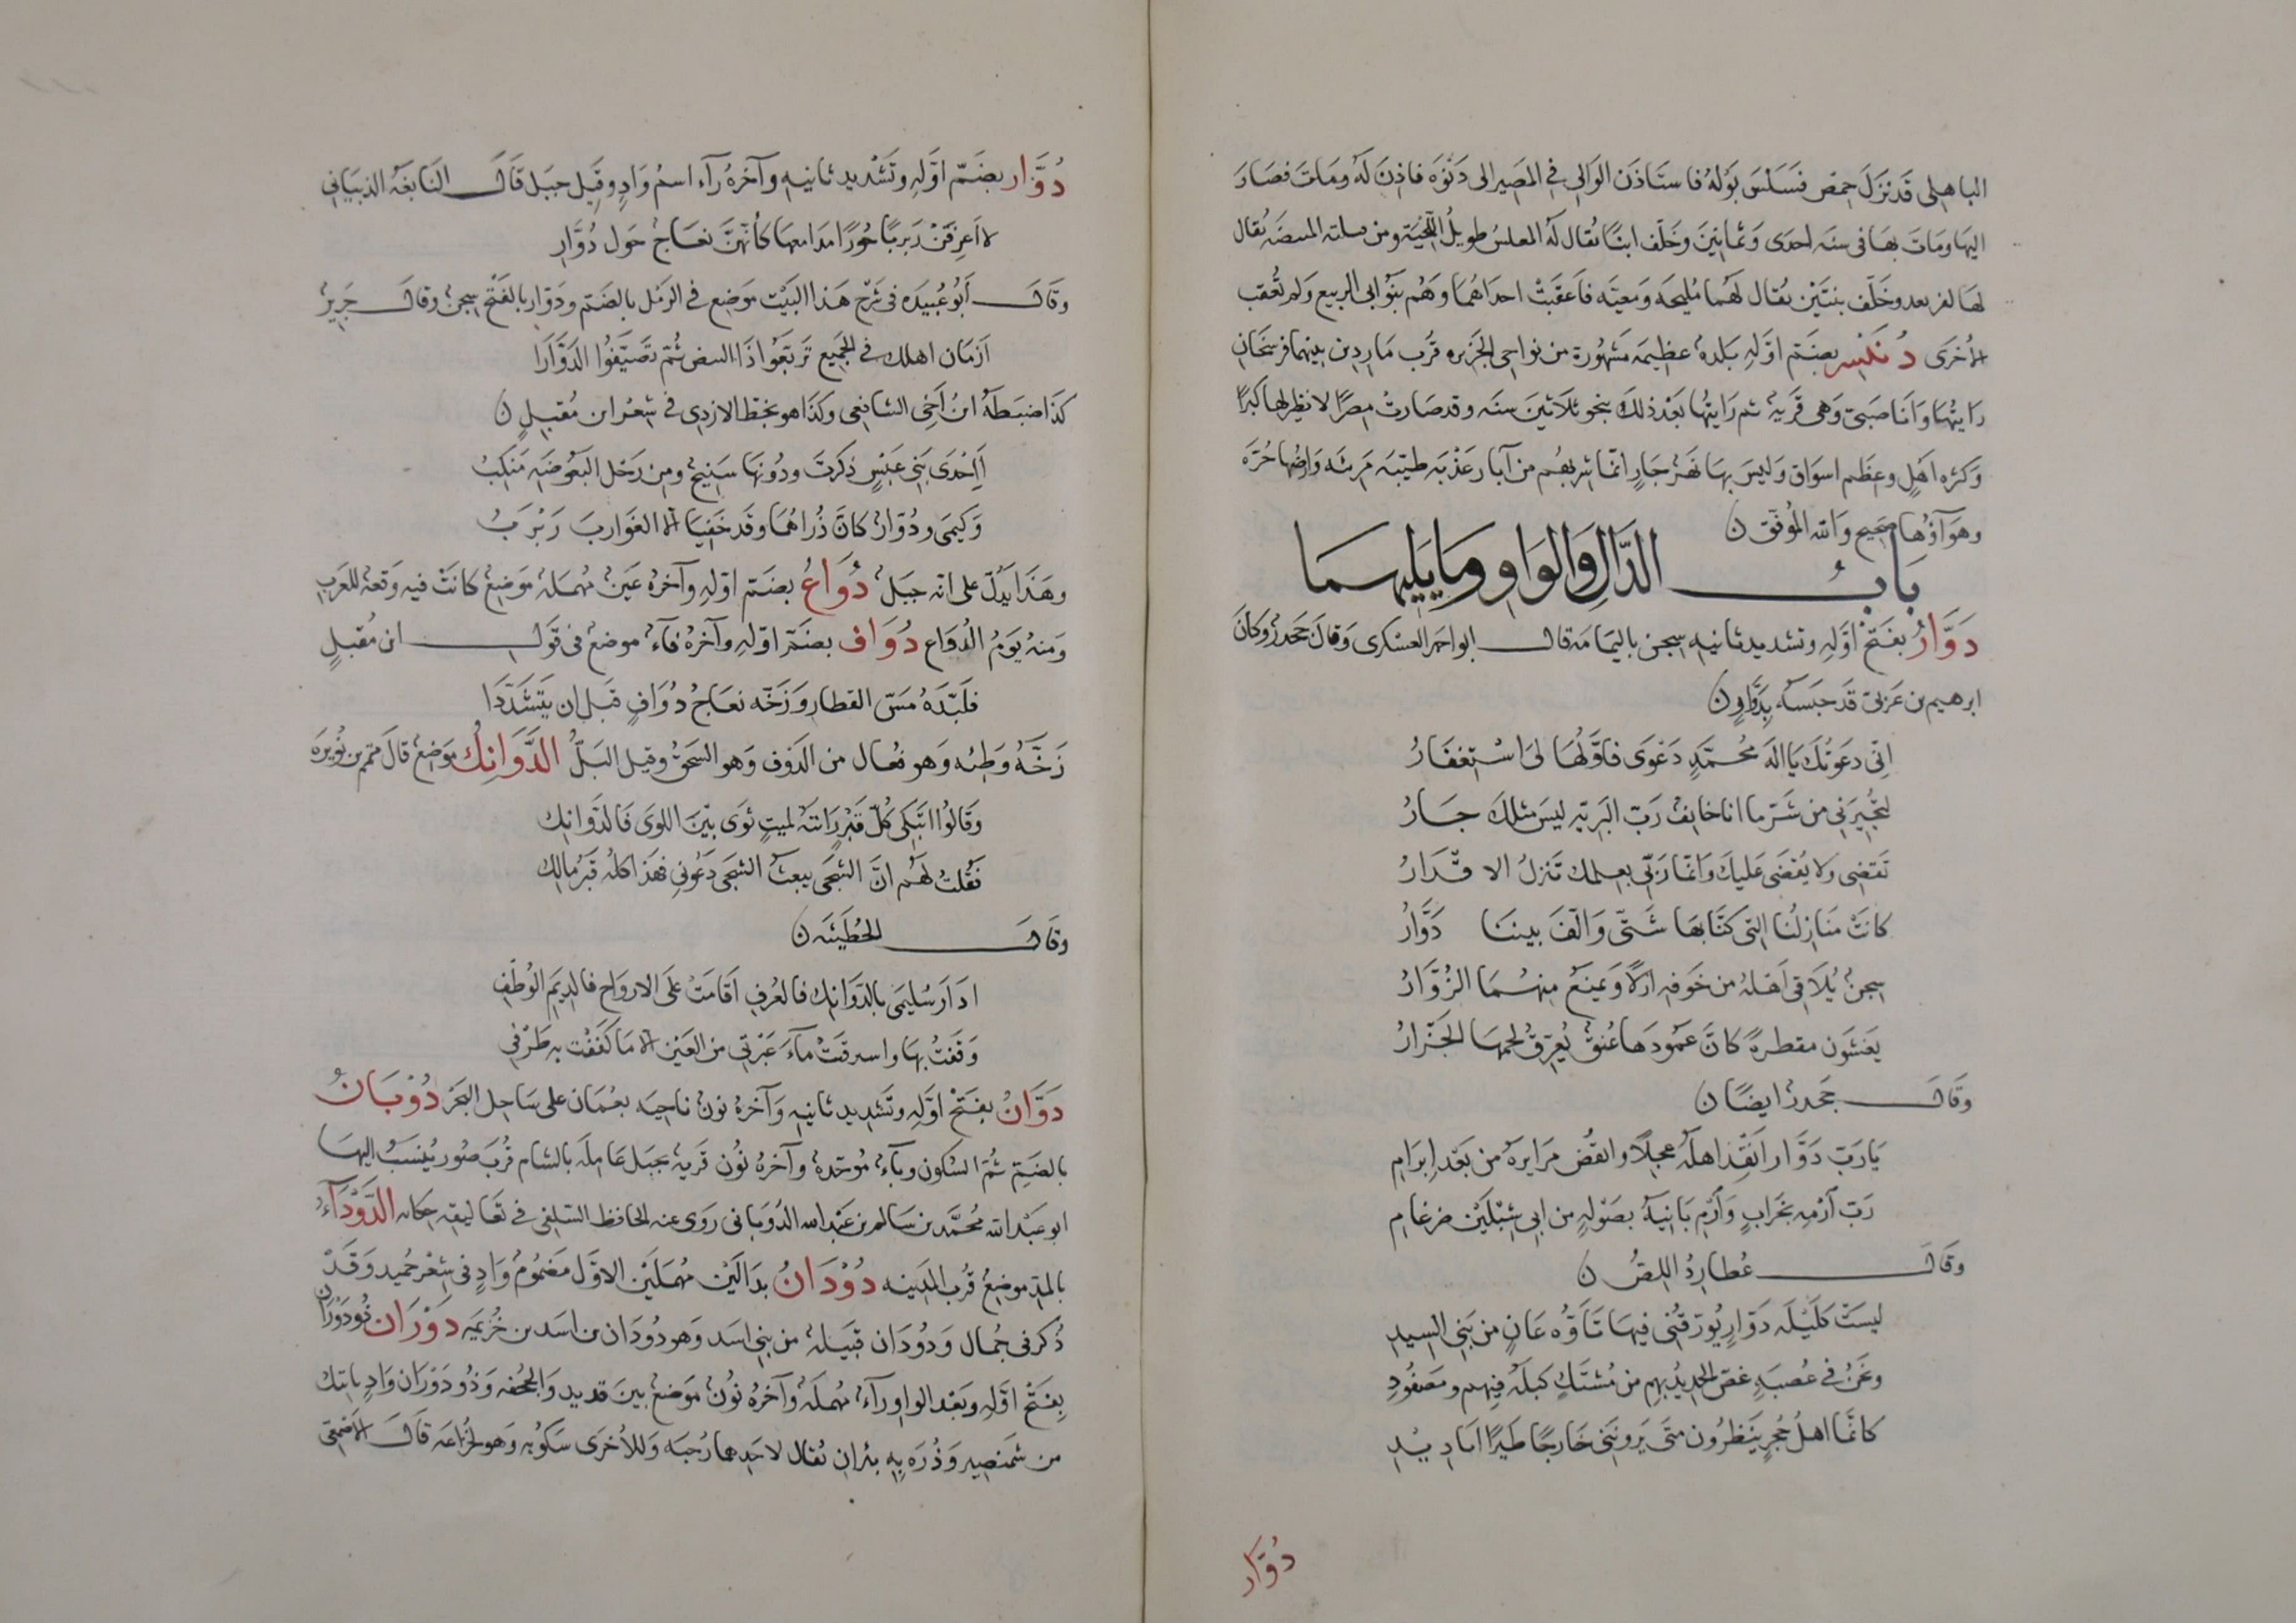 الباهلى قد نزل حمص فسلس بوله فاستاذن الوالى في المصير الى دنوه فاذن له ومات فصار
اليها ومات بها فى سنه احدى وثمانين وخلف ابنا يقال له المعلس طويل اللحية ومن يقال
لها لم بعد وخلف بنتين يقال لهما مليحه ومعينه فاعقبت احداهما وهم بنو ابى الربيع ولم تعقب
الأخرى دنيسر بضم اوله بلدة عظيمه مشهورة من نواحى الجزيره قرب ماردين بينهما فرسخان
رايتها وانا صبى وهى قرية ثم رايتها بعد ذلك بنحو ثلاثين سنه وقد صارت مصرا لا نظير لها كبرا
وكثره اهل وعظم اسواق وليس بها نهر جار انما شربهم من آبار عذبه طيبه مرئه وارضها حره
وهوآؤها صحيح والله الموفق ن
باب الدال والواو وما يليهما
دَوَّارُ بفتح اوله وتشديد ثانيه سجن باليمامه قال ابو احمد العسكرى وقال جحدر وكان
ابرهيم بن عربى قد حبسه بدوار ن
انى دعوتك يا اله محمد دعوى فاولها لى استغفار
لتجيرنى من شر ما انا خائف رب البريه ليس مثلك جار
تقضى ولا يقضى عليك وانما ربى بعلمك تنزل الاقدار
كانت منازلنا التى كنا بها شتى والف بيننا دوار
سجن يلاقى اهله من خوفه ازلا ويمنع منهما الزوار
يغشون مقطرة كان عمودها عنق يعرق لحمها الجزار
وقال جحدر ايضا ن
يا رب دوار انقذ اهله عجلا وانقض مرايره من بعد ابرام
رب ارمه بخراب وارم بانيه بصوله من ابى شبلين ضرغام
وقال عطارد اللص ن
ليست كليله دوار يورقنى فيها تاوه عان من بنى السيد
ونحن فى عصبه عض الحديد بهم من مشتك كبله فيهم ومصفود
كانما اهل حجر ينظرون متى يروننى خارجا طيرا اباديد
دُوَّار
دُوَّار بضم اوله وتشديد ثانيه وآخره رآء اسم واد وقيل جبل قال النابغة الذبيانى
لا اعرفن ربربا حورا مدامعها كأنهن نعاج حول دوار
وقال أبو عبيده فى شرح هذا البيت موضع فى الرمل بالضم ودوار بالفتح سجن وقال جرير
ازمان اهلك فى الجميع تربعوا ذا البيض ثم تصيفوا الدوارا
كذا ضبطه ابن أخى الشافعى وكذا هو بخط الازدى فى شعر ابن مقبل ن
أإحدى بنى عبس ذكرت ودونها سنيح ومن رحل البعوضه منكب
وكيمى ودوار كان ذراهما وقد خفيا الا الغوارب ربرب
وهذا يدل على انه جبل دُوَاعُ بضم اوله وآخره عين مهملة موضع كانت فيه وقعة للعرب
ومنه يوم الدواع دُوَاف بضم اوله وآخره فآء موضع فى قول ابن مقبل
فلبده مس القطار وزخه نعاج دواف قبل ان يتشددا
زخه وطئه وهو فعال من الدوف وهو السحق وقيل البل الدَّوَانِكُ موضع قال متمم بن نويره
وقالوا اتبكى كل قبر رايته لميت ثوى بين اللوى فالدوانك
فقلت لهم ان الشجى يبعث الشجى دعونى فهذا كله قبر مالك
وقال الحطيئه ن
ادار سليمى بالدوانك فالعرف اقامت على الارواح فالديم الوطف
وقفت بها واسرقت مآء عبرتى من العين الا ما كففت به طرفى
دَوَّانُ بفتح اوله وتشديد ثانيه وآخره نون ناحيه بعمان على ساحل البحر دُوْبَانُ
بالضم ثم السكون وبآء موحدة وآخره نون قرية بجبل عاملة بالشام قرب صور ينسب اليها
ابو عبد الله محمد بن سالم بن عبد الله الدوبانى روى عنه الحافظ السلفى فى تعاليقه حكاه الدَّوْدَآءُ
بالمد موضع قرب المدينه دُوْدَانُ بدالين مهملين الاول مضموم واد فى شعر حميد وقد
ذكر فى جمال ودودان قبيلة من بنى اسد وهو دودان بن اسد بن خزيمه دَوْرَان ذو دوران
بفتح اوله وبعد الواو رآء مهمله وآخره نون موضع بين قديد والجحفه وذو دوران واد ياتيك
من شمنصير وذره به بئران يقال لاحدهما رحبه وللأخرى سكوبه وهو لخزاعه قال الاصمعى